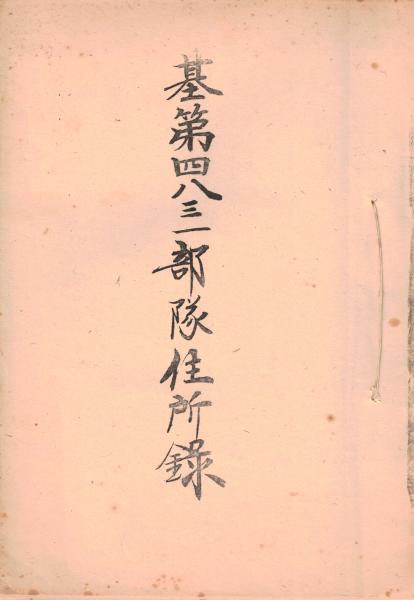 基第四八三一部隊住所錄